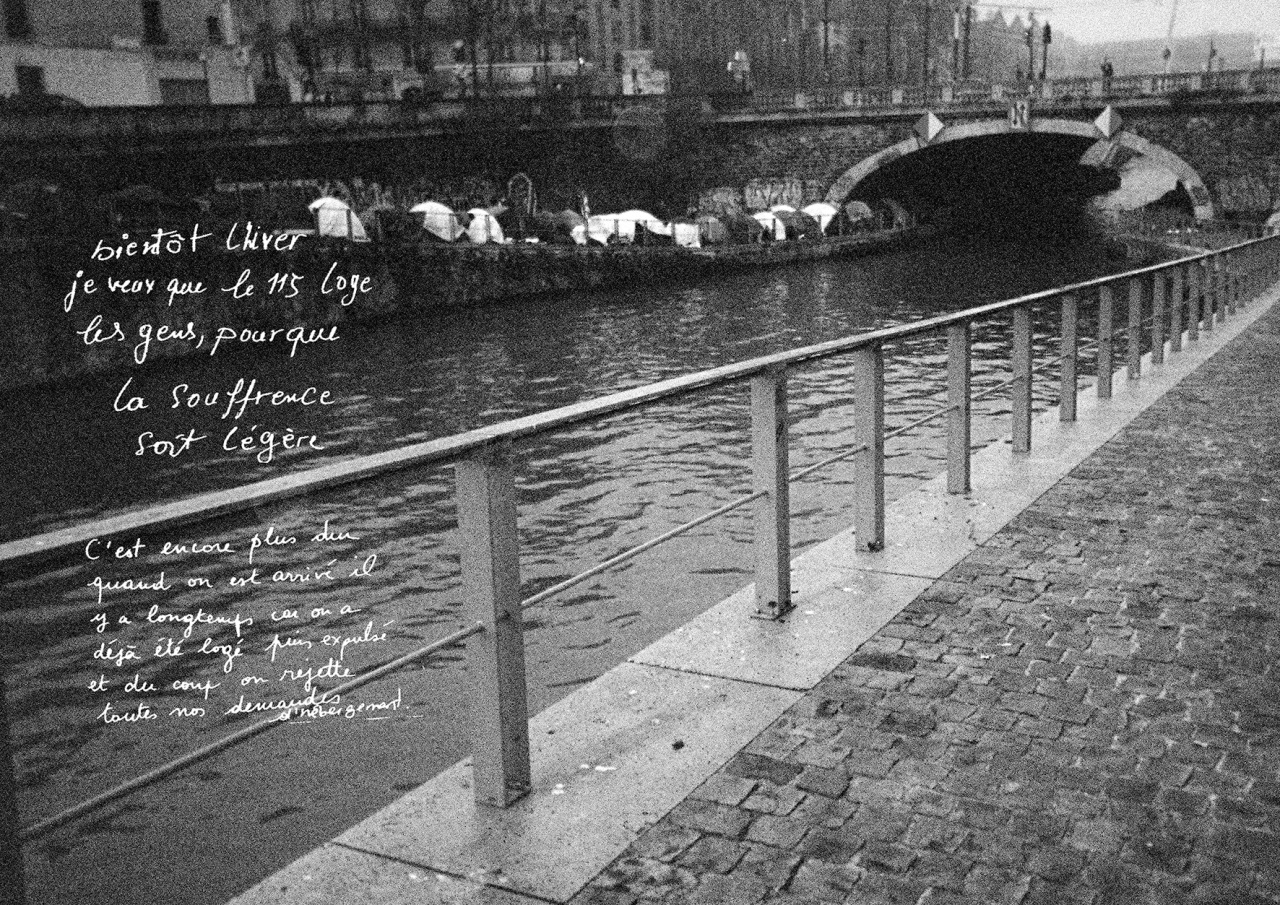 bientôt l'hiver
je veux que le 115 loge
les gens, pour que
la souffrence
soit légère
C'est encore plus dur
quand on est arrivé il
y a longtemps car on a
déjà été logé puis expulsé
et du coup on rejette
toutes nos demandes
d'hébergement.